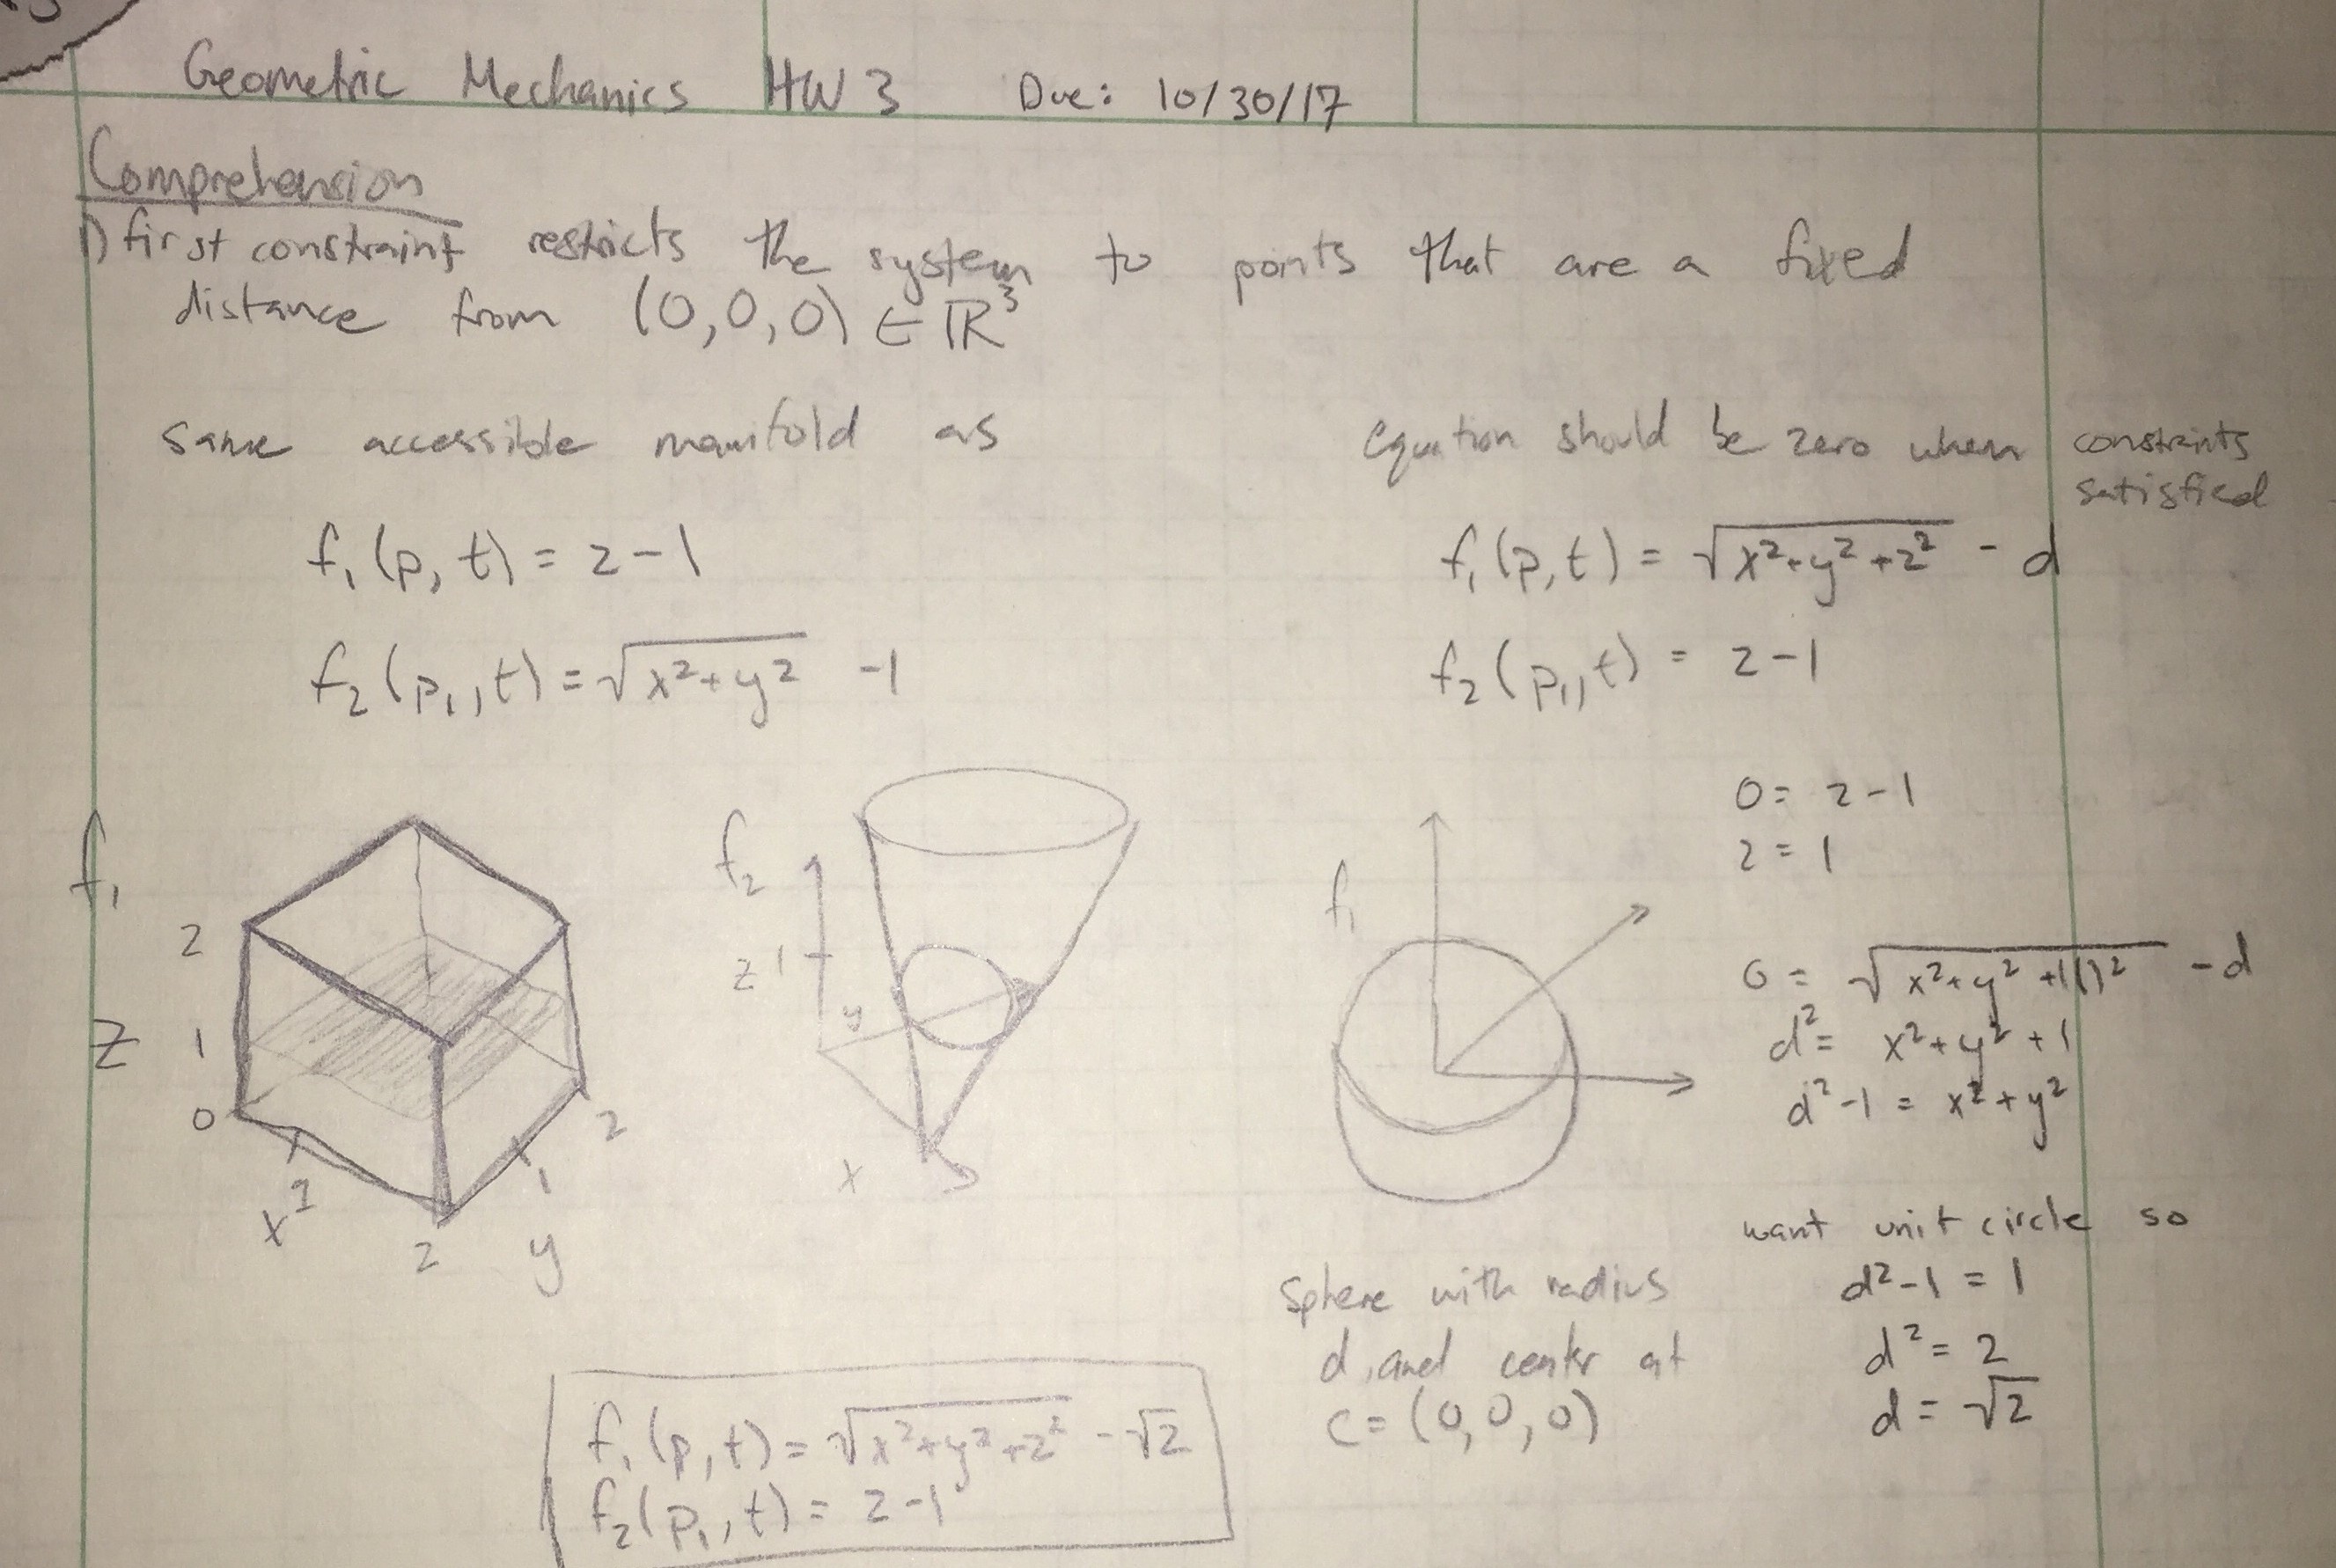 Geometric Mechanics HW 3 Due: 10/30/17
Comprehension
1) first constraint restricts the system to points that are a fixed
distance from (0,0,0) ∈ ℝ³
same accessible manifold as
f₁(p,t) = z-1
f₂(p₁,t) = √(x²+y²) -1
equation should be zero when constraints
satisfied
f₁(p,t) = √(x²+y²+z²) - d
f₂(p₁,t) = z-1
0 = z-1
z = 1
0 = √(x²+y²+(1)²) - d
d² = x²+y²+1
d²-1 = x²+y²
want unit circle so
d²-1 = 1
d² = 2
d = √2
f₁
2
z 1
0
2
x
2
1
2
y
f₂
z 1
y
x
f₁
Sphere with radius
d, and center at
c = (0,0,0)
f₁(p,t) = √(x²+y²+z²) - √2
f₂(p₁,t) = z-1